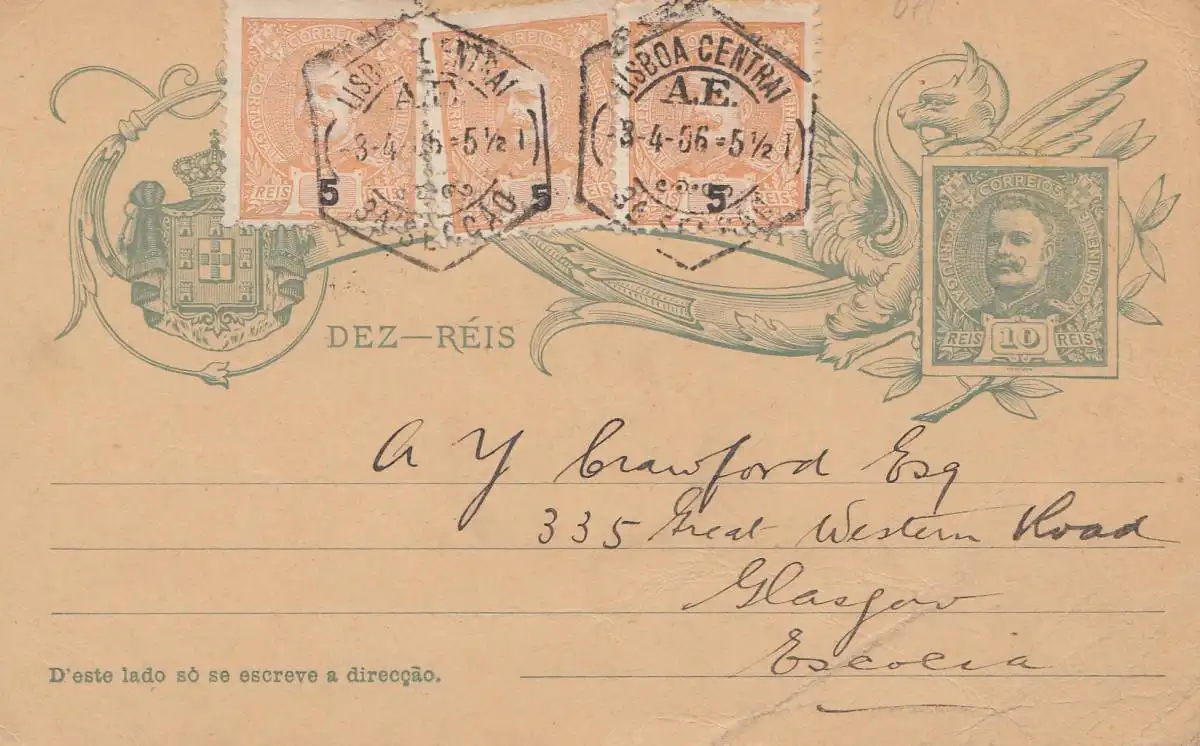 CORREIOS
REIS 5
CORREIOS
REIS 5
5
LISBOA CENTRAL
A.E.
-3-4-06=5½ T
SECÇÃO
LISBOA CENTRAL
A.E.
-3-4-06=5½ T
DEZ—RÉIS
CORREIOS
REIS 10 REIS
A Y Crawford Esq
335 Great Western Road
Glasgow
Escocia
D'este lado só se escreve a direcção.